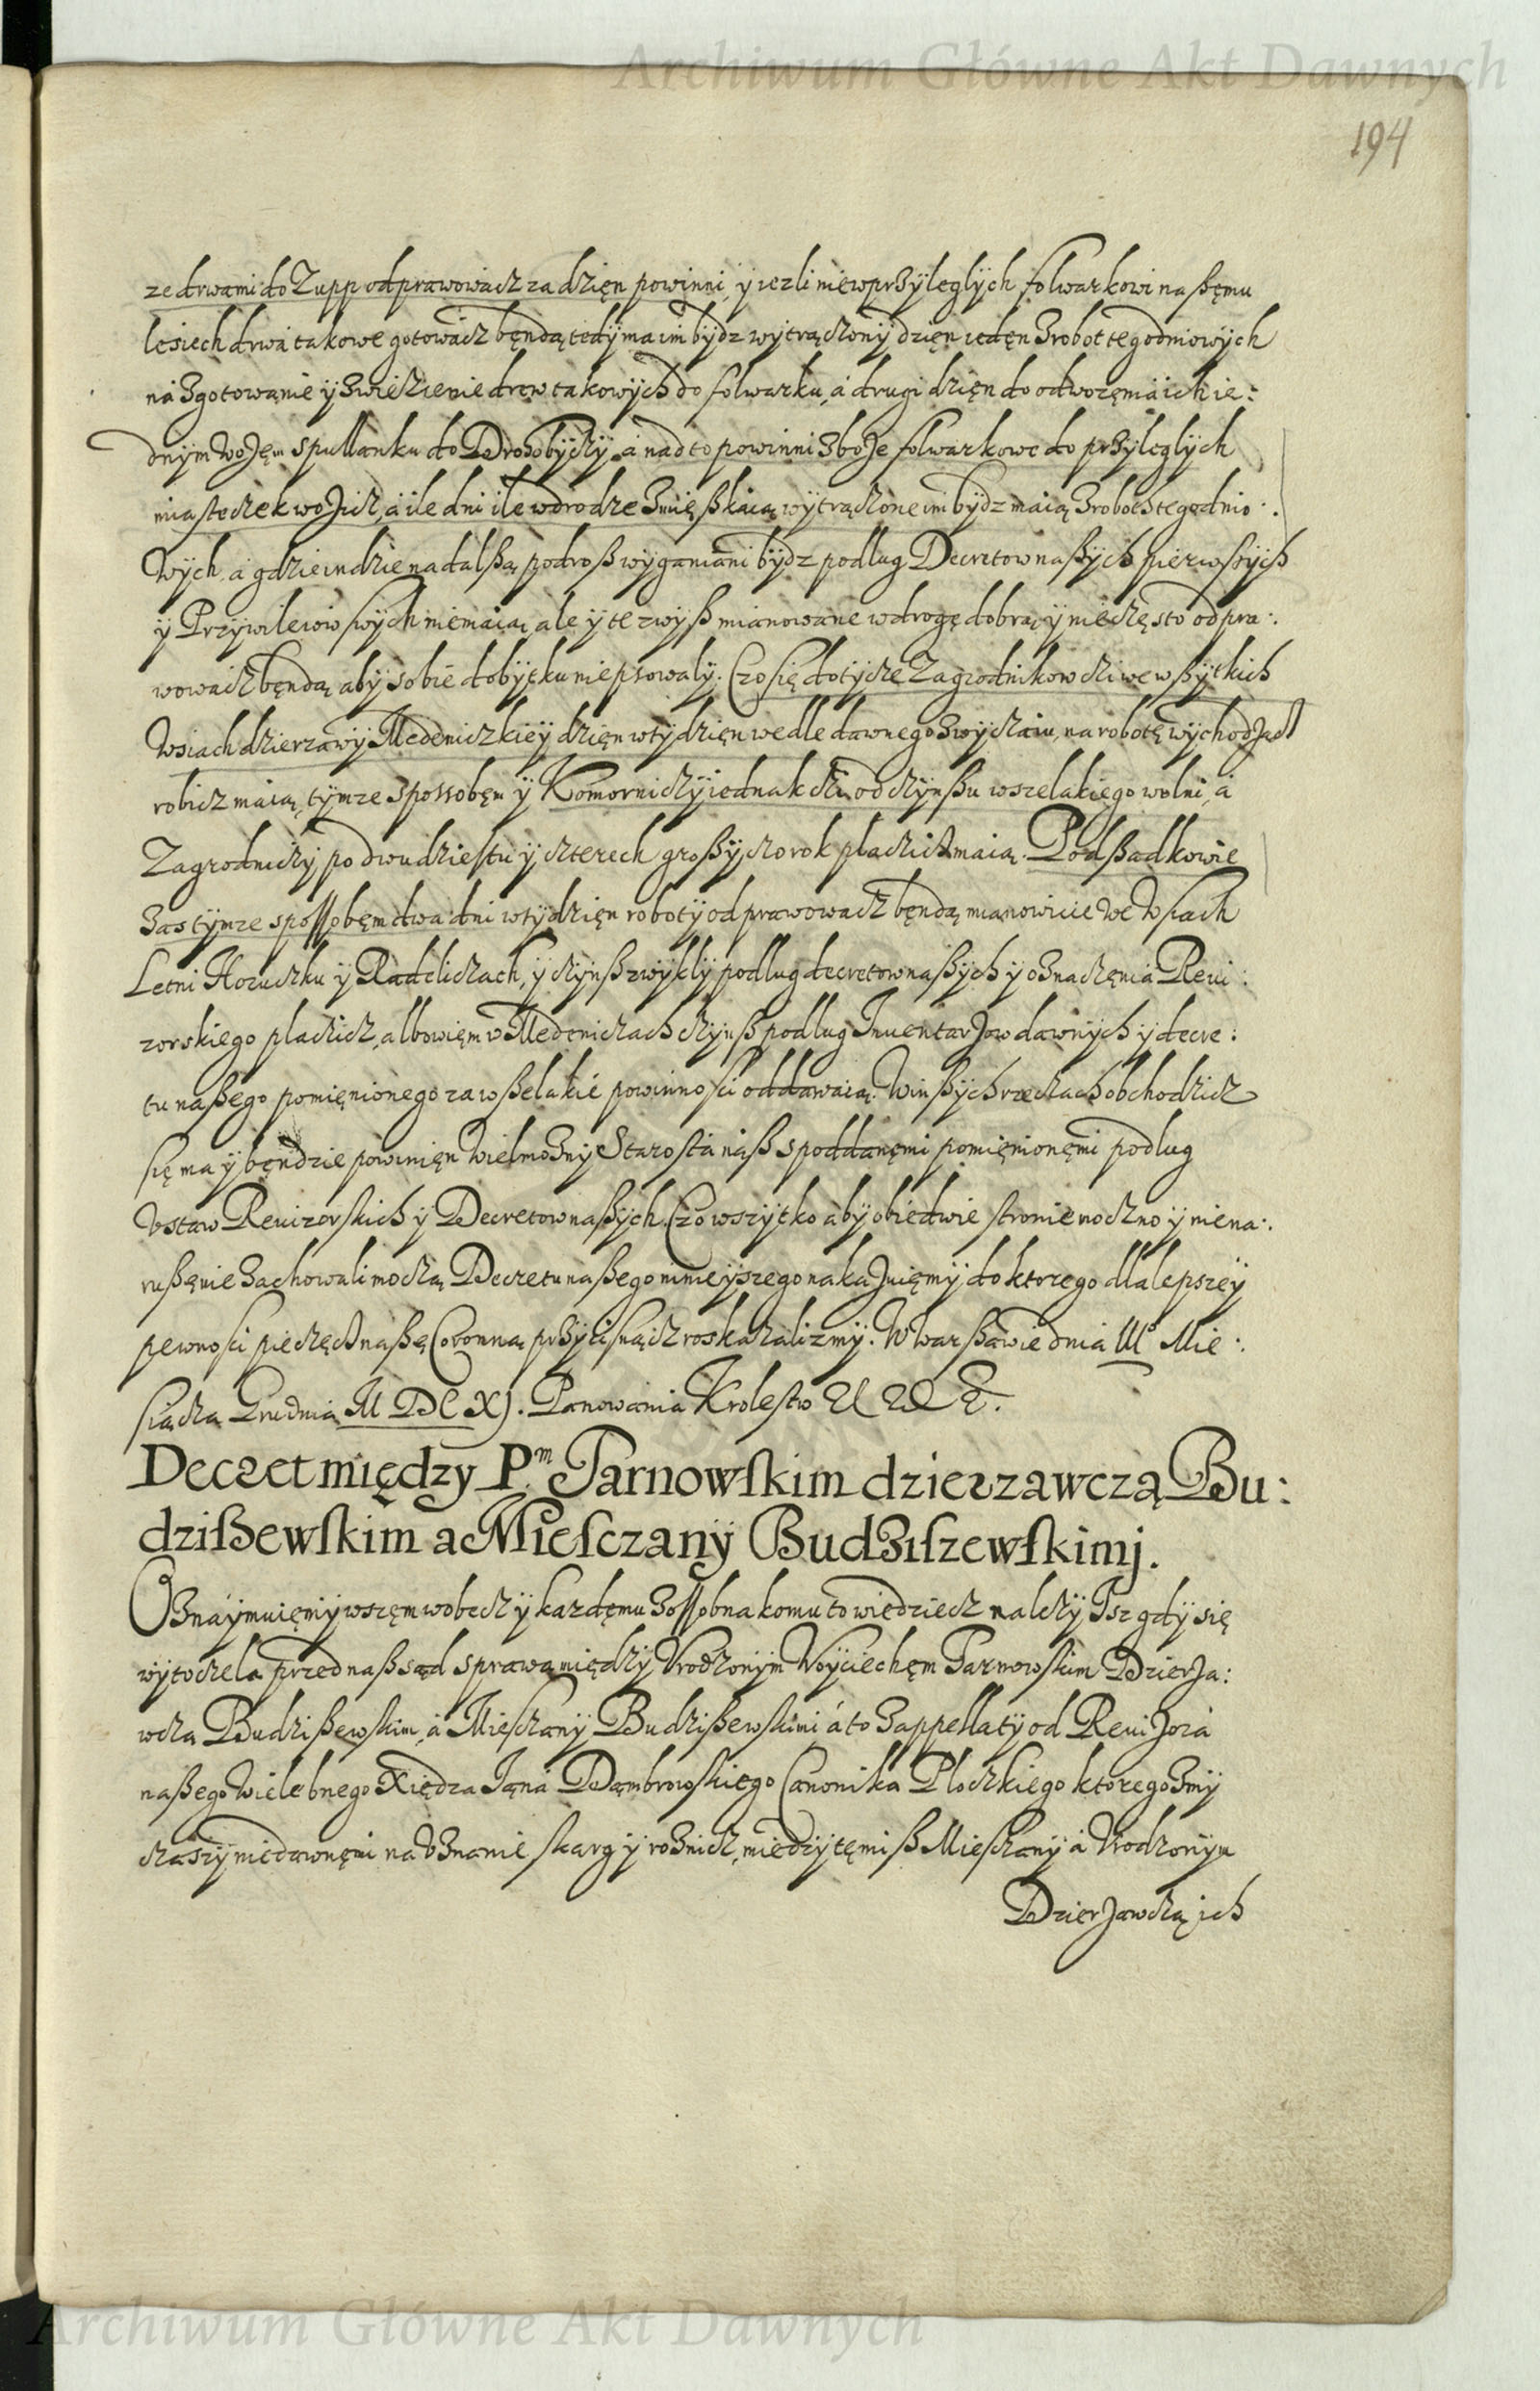 Archiwum Główne Akt Dawnych
194
ze drwami do Zupp odprawowacz za dzięn powinni, y iezli niewprzyległych folwarkowi naßęmu
lesiech drwa takowe gotowacz będą tedy ma im bydz wytrączony dzięn iedęn z robot tegodniowych
na zgotowanie y zwiezienie drew takowych do folwarku, a drugi dzięn do odwozęnia ich ie:
dnym wozęm spullanku do Drohobyczy, a nadto powinni zboze folwarkowe do przyległych
miasteczek wozicz, a ile dni ile wdrodze zmięßkaią wytrączone im bydz maią z robot tegodnio:
wych, a gdzieindzie na dalßą podroß wyganiani bydz podlug Decretow naßych pierwßych
y Przywileiow swych niemaią, ale y te zwyß mianowane wdrogę dobrą y nieczęsto odpra:
wowacz będą aby sobie dobytku niepsowaly. Czo się dotycze Zagrodnikow czi we wßytkich
Wsiach dzierzawy Medeniczkiey dzięn wtydzięn wedle dawnego zwyczaiu, na robotę wychodząc
robicz maią, tymze spossobęm y Komorniczy iednak czi od czynßu wszelakiego wolni, a
Zagrodniczy po dwudziestu y czterech groszy czo rok placzicz maią. Podsadkowie
zas tymze spossobęm dwa dni wtydzięn roboty odprawowacz będą mianowicie we Wsiach
Letni Horuczku y Radeliczach, y czynß zwykly podlug decretow naßych y oznaczęnia Reui:
zorskiego placzicz, albowięm w Medeniczach czynß podlug Inuentarzow dawnych y decre:
tu naßego pomięnionego za wßelakie powinnosci oddawaią. W inßych rzeczach obchodzicz
się ma y będzie powinięn Wielmozny Starosta naß s poddanęmi pomięnionęmi podlug
Ustaw Reuizorskich y Decretow naßych. Czo wszytko aby obiedwie stronie moczno y niena:
rußęnie zachowali moczą Decretu naßego ninieyszego nakazuięmy do ktorego dla lepszey
pewnosci pieczęcz naßę Coronną przycisnącz roskazalizmy. W Warßawie dnia III Mie:
siącza Grudnia M DC XI. Panowania Krolestw
Decret między Pm Tarnowskim dzierzawczą Bu:
dzißewskim a Miesczany Budziszewskimi.
Oznaymuięmy wszęm wobecz y kazdęmu zossobna komu to wiedziecz nalezy Isz gdy się
wytoczela przed naß sąd sprawa między Urodzonym Woyciechęm Tarnowskim Dzierza:
wczą Budzißewskim, a Miesczany Budzißewskimi a to z appellaty od Reuizora
naßego Wielebnego Xiędza Jana Dąmbrowskiego Canonika Ploczkiego ktoregozmy
czaszy niedawnęmi na uznanie skarg y roznicz, między tęmiß Miesczany a Urodzonym
Dzierzawczą ich
Archiwum Główne Akt Dawnych